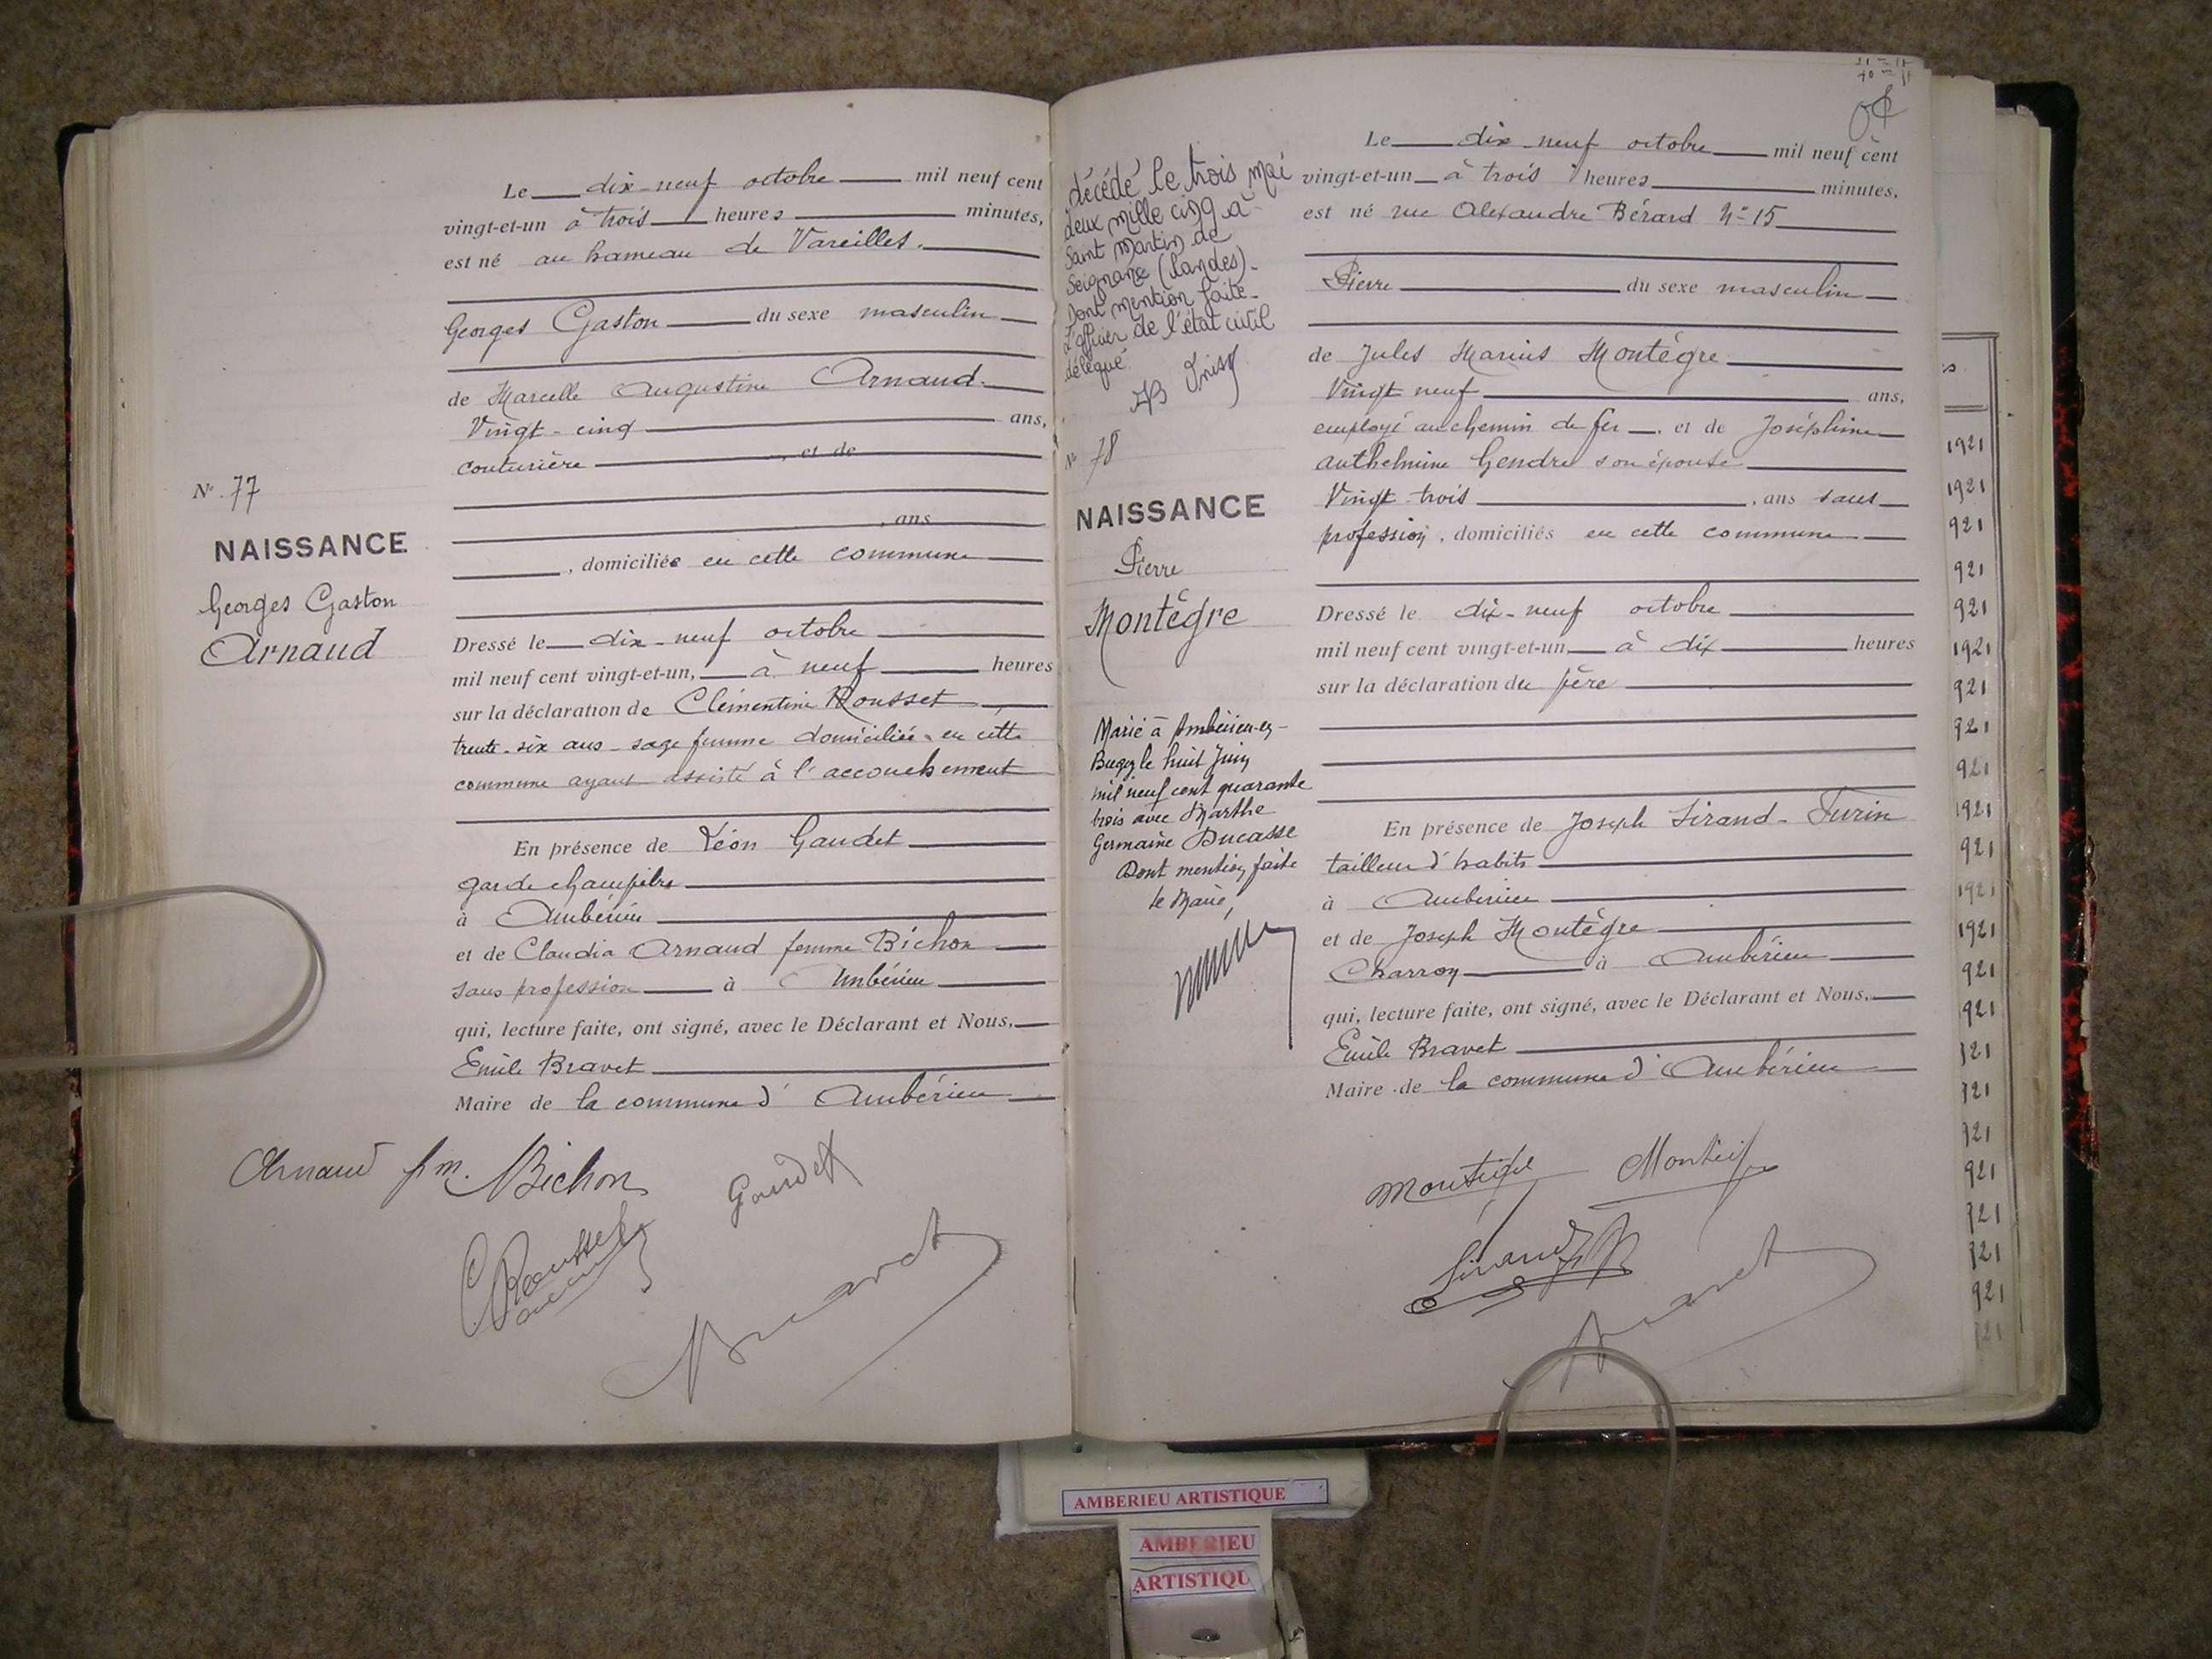 Le dix-neuf octobre mil neuf cent
vingt-et-un à trois heures minutes,
est né au hameau de Vareilles.
Georges Gaston du sexe masculin
de Marcelle Augustine Arnaud.
Vingt-cinq ans,
couturière, et de
, ans
, domiciliée en cette commune
Dressé le dix-neuf octobre
mil neuf cent vingt-et-un, à neuf heures
sur la déclaration de Clémentine Rousset
trente-six ans - sage femme domiciliée en cette
commune ayant assisté à l'accouchement
En présence de Léon Gaudet
garde champêtre
à Ambérieu
et de Claudia Arnaud femme Bichon
sans profession à Ambérieu
qui, lecture faite, ont signé, avec le Déclarant et Nous,
Emile Bravet
Maire de la commune d'Ambérieu
No. 77
NAISSANCE
Georges Gaston
Arnaud
Arnaud fm. Bichon
Gaudet
C Rousset
Bravet
décédé le trois mai
deux mille cinq à
Saint Martin de
Seignanx (Landes).
Dont mention faite.
L'officier de l'état civil
délégué.
No 78
NAISSANCE
Pierre
Montègre
Marié à Ambérieu-en-
Bugey le huit Juin
mil neuf cent quarante
trois avec Marthe
Germaine Ducasse
Dont mention faite
le Maire,
Le dix-neuf octobre mil neuf cent
vingt-et-un à trois heures minutes,
est né rue Alexandre Bérard No 15
Pierre du sexe masculin
de Jules Marius Montègre
Vingt neuf ans,
employé au chemin de fer. et de Joséphine
Anthelmine Gendre son épouse
Vingt-trois, ans sans
profession, domiciliés en cette commune
Dressé le dix-neuf octobre
mil neuf cent vingt-et-un à dix heures
sur la déclaration du père
En présence de Joseph Sirand-Turin
tailleur d'habits
à Ambérieu
et de Joseph Montègre
Charron à Ambérieu
qui, lecture faite, ont signé, avec le Déclarant et Nous,
Emile Bravet
Maire de la commune d'Ambérieu
Montègre
Montègre
Sirand
Bravet
1921
1921
921
921
921
1921
921
921
921
1921
921
1921
1921
921
921
921
921
921
921
921
921
921
AMBERIEU ARTISTIQUE
AMBERIEU
ARTISTIQU